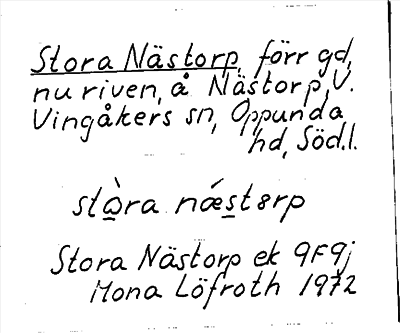 Stora Nästorp, förr gd,
nu riven, å Nästorp, V.
Vingåkers sn, Oppunda
hd, Söd.l.
stòra næ̀st8rp
Stora Nästorp ek 9F9j
Mona Löfroth 1972